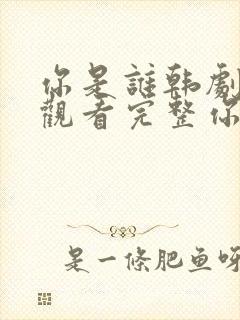 你是誰韓劇
觀看完整你
是一條肥鱼呀